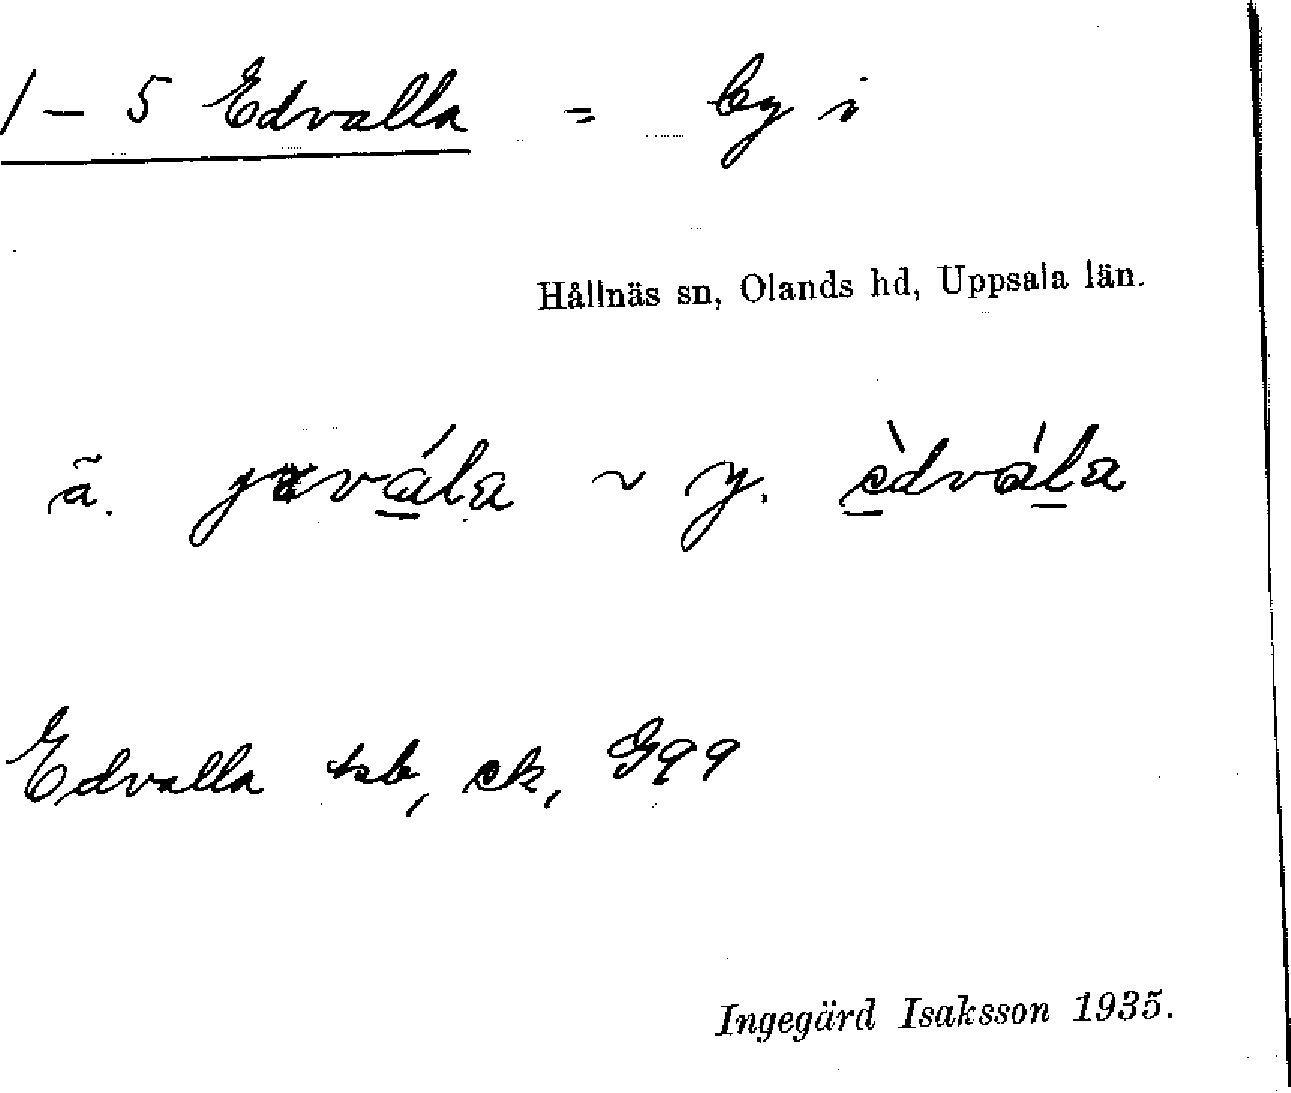 1 – 5 Edvalla = by i
Hållnäs sn, Olands hd, Uppsala län.
ä. javála ~ y. èdvála
Edvalla tsb, ek, G99
Ingegärd Isaksson 1935.